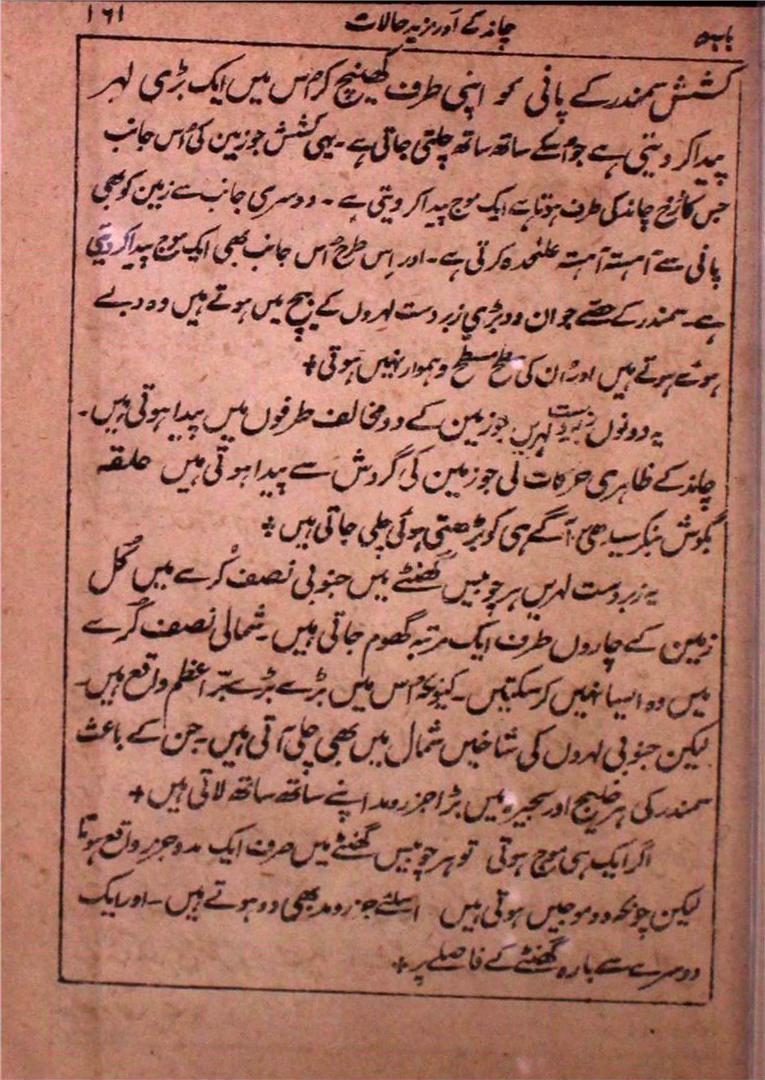 باب ۵ چاند کے اور مزید حالات ۱۶۱
کشش سمندر کے پانی کو اپنی طرف کھینچ کر اس میں ایک بڑی لہر
پیدا کر دیتی ہے جو اُسکے ساتھ ساتھ چلتی جاتی ہے۔ یہی کشش جو زمین کی اُس جانب
جس کا رُخ چاند کی طرف ہوتا ہے ایک موج پیدا کر دیتی ہے۔ دوسری جانب سے زمین کو بھی
پانی سے آہستہ آہستہ علٰحدہ کرتی ہے۔ اور اِس طرح اُس جانب بھی ایک موج پیدا کر دیتی
ہے۔ سمندر کے حصّے جو ان دو بڑی زبردست لہروں کے بیچ میں ہوتے ہیں وہ دبے
ہوئے ہوتے ہیں اور اُن کی سطح مسطح و ہموار نہیں ہوتی +
یہ دونوں زبردست لہریں جو زمین کے دو مخالف طرفوں میں پیدا ہوتی ہیں۔
چاند کے ظاہری حرکات کی جو زمین کی گردش سے پیدا ہوتی ہیں حلقہ
بگوش بنکر سیدھی آگے ہی کو بڑھتی ہوئی چلی جاتی ہیں +
یہ زبردست لہریں ہر چوبیس گھنٹے میں جنوبی نصف کُرے میں کُل
زمین کے چاروں طرف ایک مرتبہ گھوم جاتی ہیں۔ شمالی نصف کُرے
میں وہ ایسا نہیں کر سکتیں۔ کیونکہ اس میں بڑے بڑے برّ اعظم واقع ہیں۔
لیکن جنوبی لہروں کی شاخیں شمال میں بھی چلی آتی ہیں۔ جن کے باعث
سمندر کی ہر خلیج اور بحیرہ میں بڑا جزر و مد اپنے ساتھ ساتھ لاتی ہیں +
اگر ایک ہی موج ہوتی تو ہر چوبیس گھنٹے میں صرف ایک مد و جزر واقع ہوتا
لیکن چونکہ دو موجیں ہوتی ہیں اسلئے جزر و مد بھی دو ہوتے ہیں۔ اور ایک
دوسرے سے بارہ گھنٹے کے فاصلے پر +